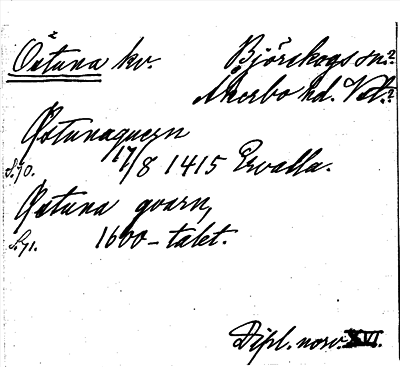 Östuna kv. Björskogs sn.?
Åkerbo hd. Vstm.?
Østunaquern
S. 70. 17/8 1415 Ervalla.
Østuna qvarn,
S. 71. 1600-talet.
Dipl. norv. XVI.